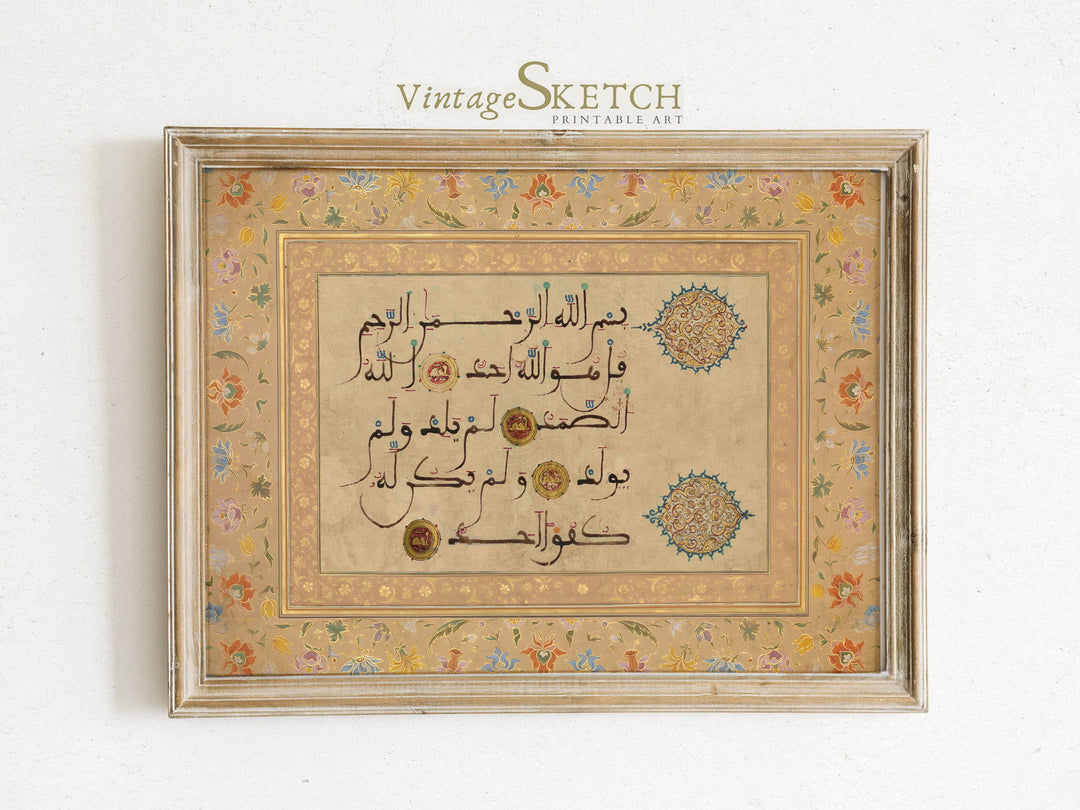 VintageSKETCH
PRINTABLE ART
بِسْمِ اللَّهِ الرَّحْمَٰنِ الرَّحِيمِ
قُلْ هُوَ اللَّهُ أَحَدٌ اللَّهُ
الصَّمَدُ لَمْ يَلِدْ وَلَمْ
يُولَدْ وَلَمْ يَكُن لَّهُ
كُفُوًا أَحَدٌ